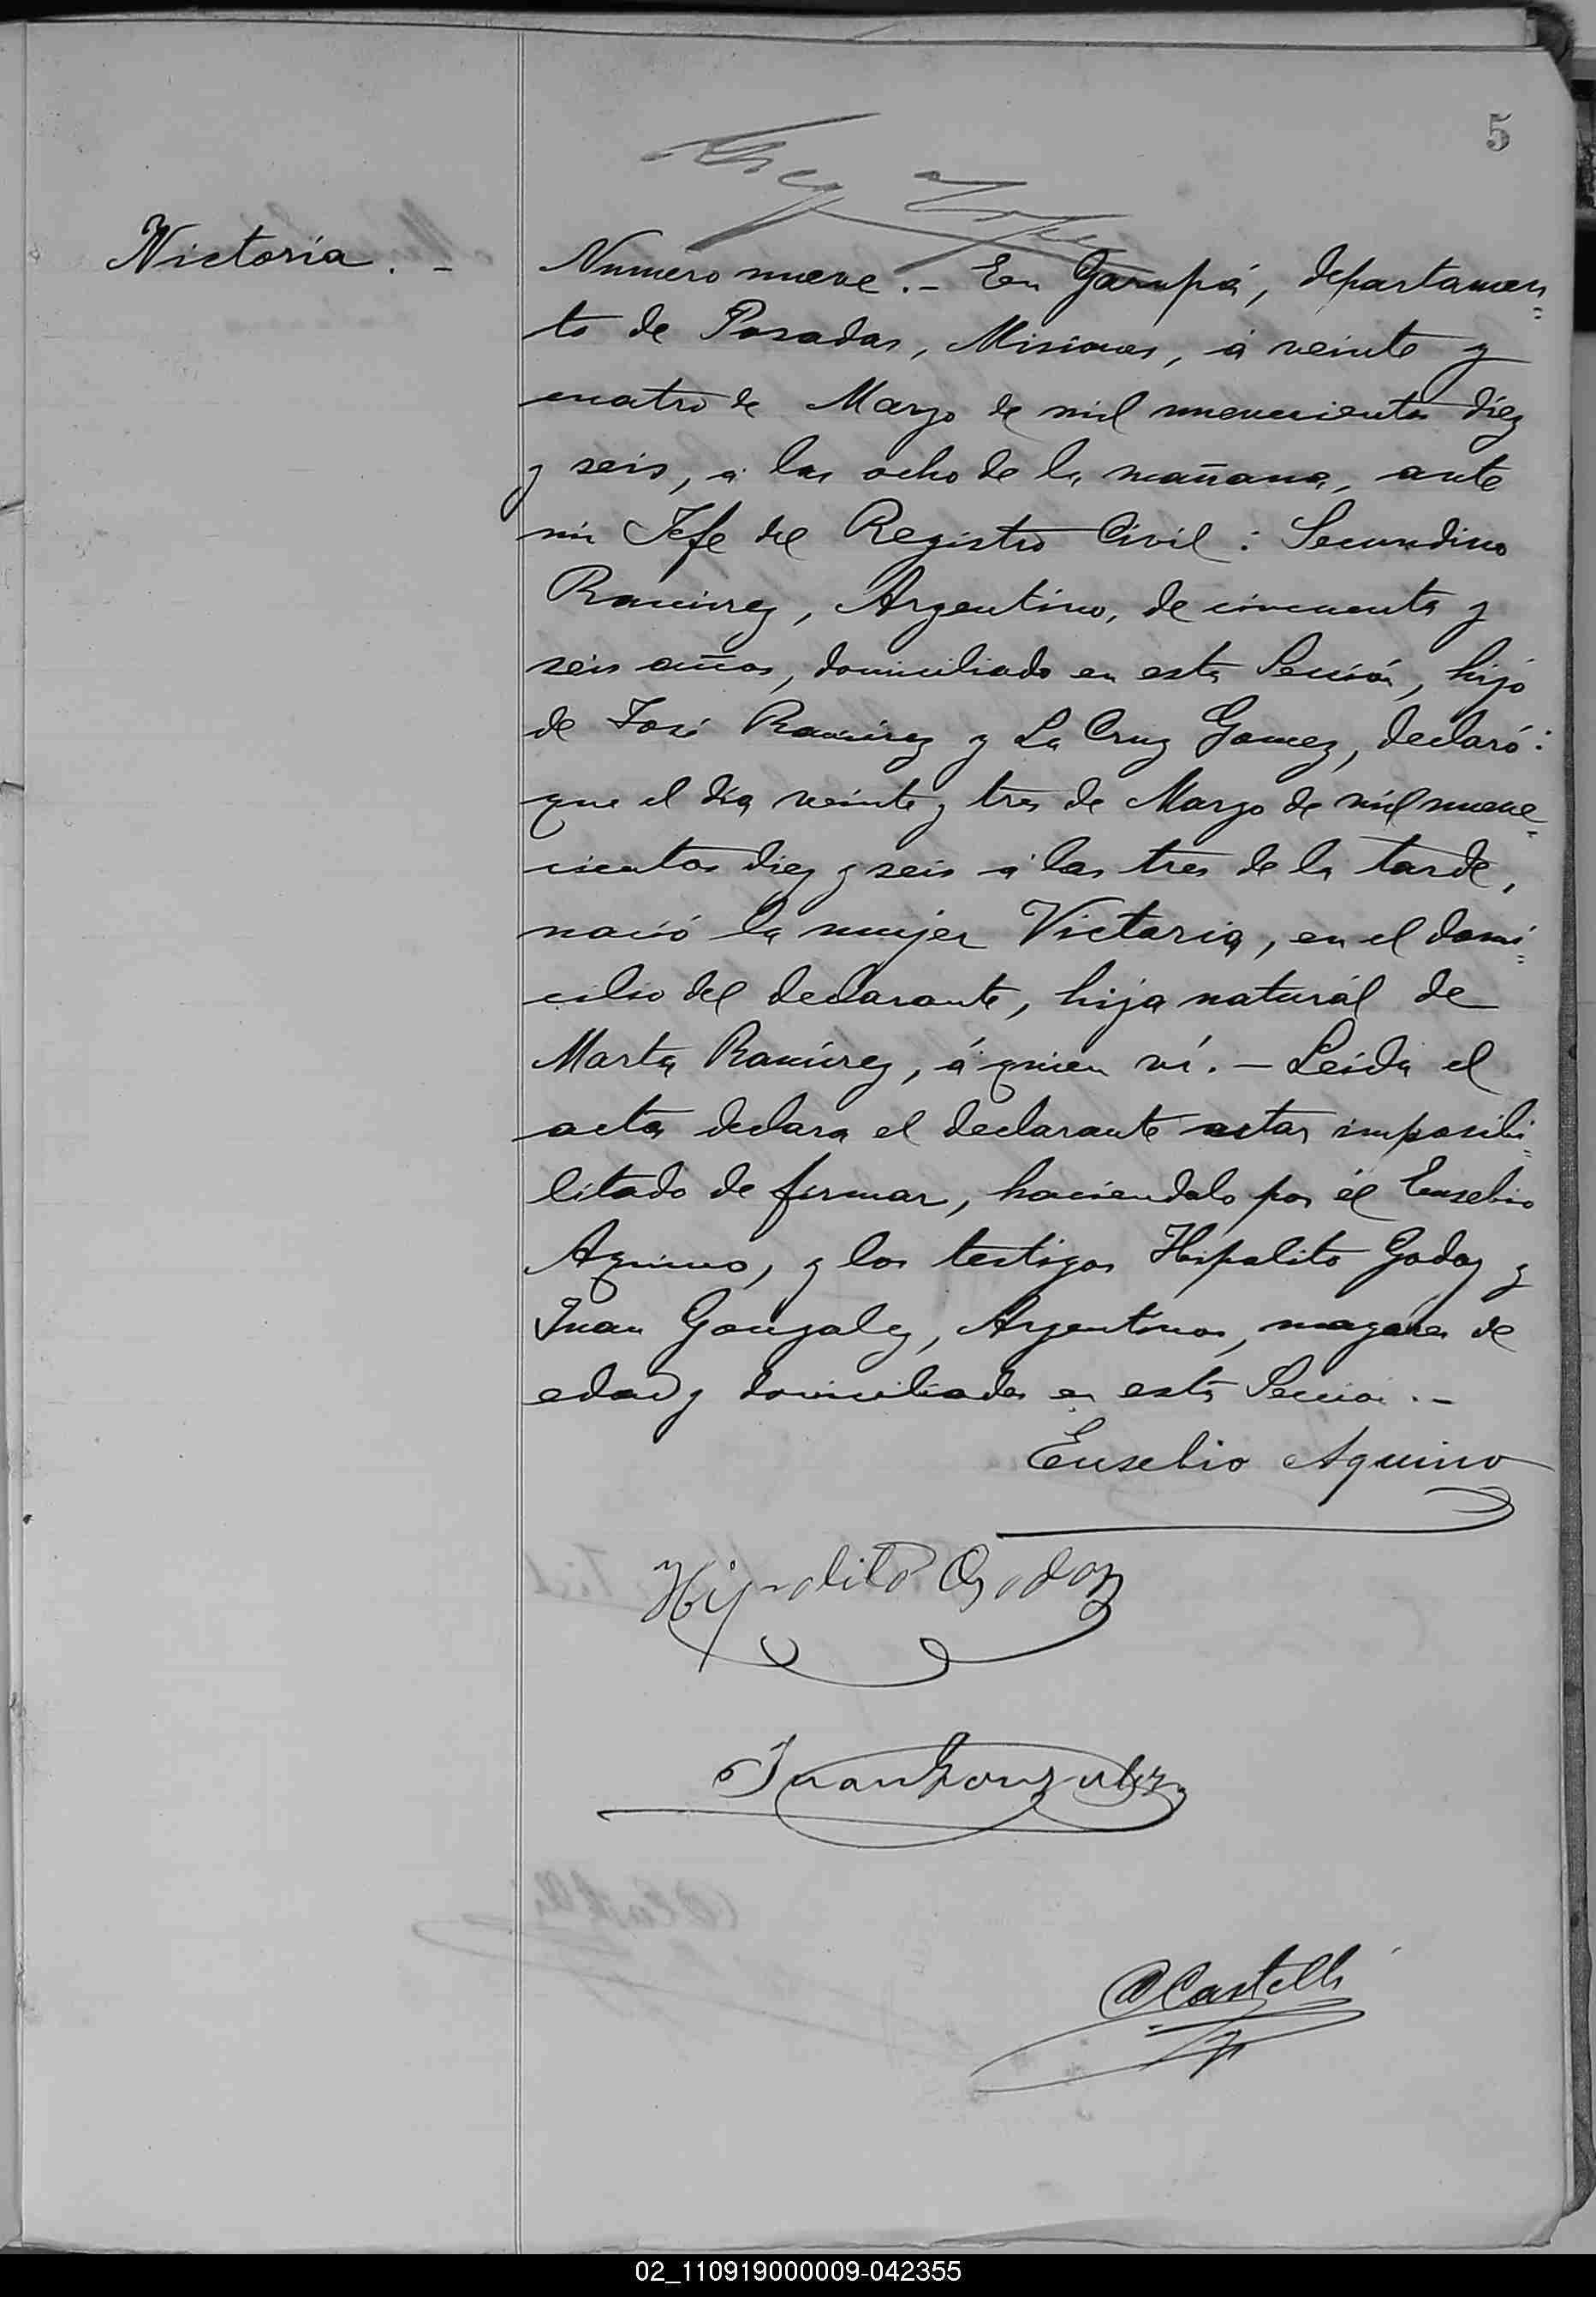 5
Victoria . -
Numero nueve .- En Garupá, departamen=
to de Posadas, Misiones, á veinte y
cuatro de Marzo de mil nuevecientos diez
y seis, á las ocho de la mañana, ante
mi Jefe del Registro Civil: Secundino
Ramirez, Argentino, de cincuenta y
seis años, domiciliado en esta Sección, hijo
de José Ramirez y La Cruz Gomez, declaró:
que el día veinte y tres de Marzo de mil nueve=
cientos diez y seis á las tres de la tarde,
nació la mujer Victoria, en el domi=
cilio del declarante, hija naturál de
Marta Ramírez, á quien ví. - Leida el
acta declara el declarante estar imposibi=
litado de firmar, haciendolo por él Eusebio
Aquino, y los testigos Hipolito Godoy y
Juan Gonzalez, Argentinos, mayores de
edad y domiciliados en esta Sección .-
Eusebio Aquino
Hipolito Godoy
Juan Gonzalez
Castelli
02_110919000009-042355